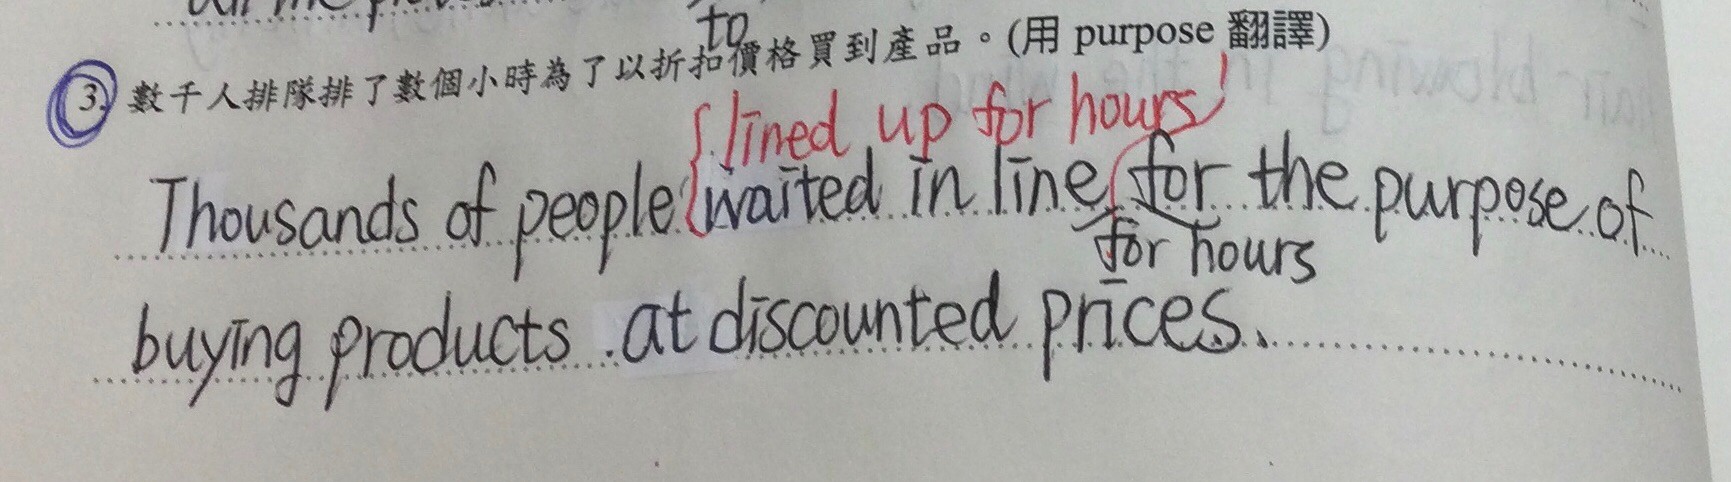 to
3. 數千人排隊排了數個小時為了以折扣價格買到產品。(用 purpose 翻譯)
lined up for hours
Thousands of people waited in line for the purpose of
for hours
buying products at discounted prices.